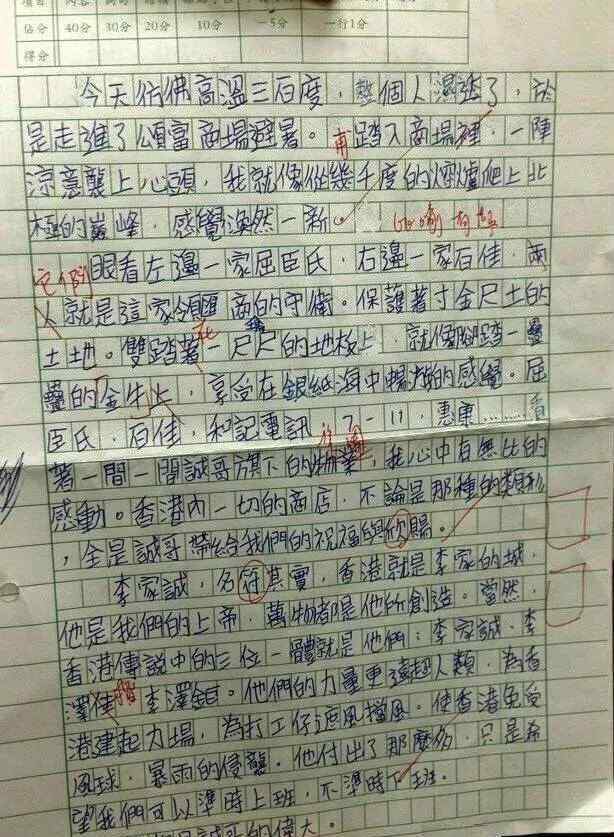 項目
佔分 40分 30分 20分 10分 -5分 一行1分
得分
今天彷彿高溫三百度，整個人濕透了，於
是走進了頌富商場避暑。再踏入商場裡，一陣
涼意襲上心頭，我就像從幾千度的火爐爬上北
極的巔峰，感覺煥然一新。
眼看左邊一家屈臣氏，右邊一家百佳，兩
人就是這家領匯商的守衛。保護著寸金尺土的
土地。雙踏著一尺尺的地板上，就像腳踏一疊
疊的金牛上，享受在銀紙海中暢遊的感覺。屈
臣氏，百佳，和記電訊，7-11，惠康……看
著一間一間誠哥旗下的物業，我心中有無比的
感動。香港內一切的商店，不論是那種的類形
，全是誠哥帶給我們的祝福與欣賜。
李家誠，名符其實，香港就是李家的城，
他是我們的上帝，萬物都是他所創造。當然，
香港傳說中的三位一體就是他們：李家誠，李
澤佳 楷 李澤鉅。他們的力量更遠超人類，為香
港建起力場，為打工仔遮風擋風。使香港免受
風球，暴雨的侵襲。他付出了那麼多，只是希
望我們可以準時上班，不準時下班。
誠哥的偉大。